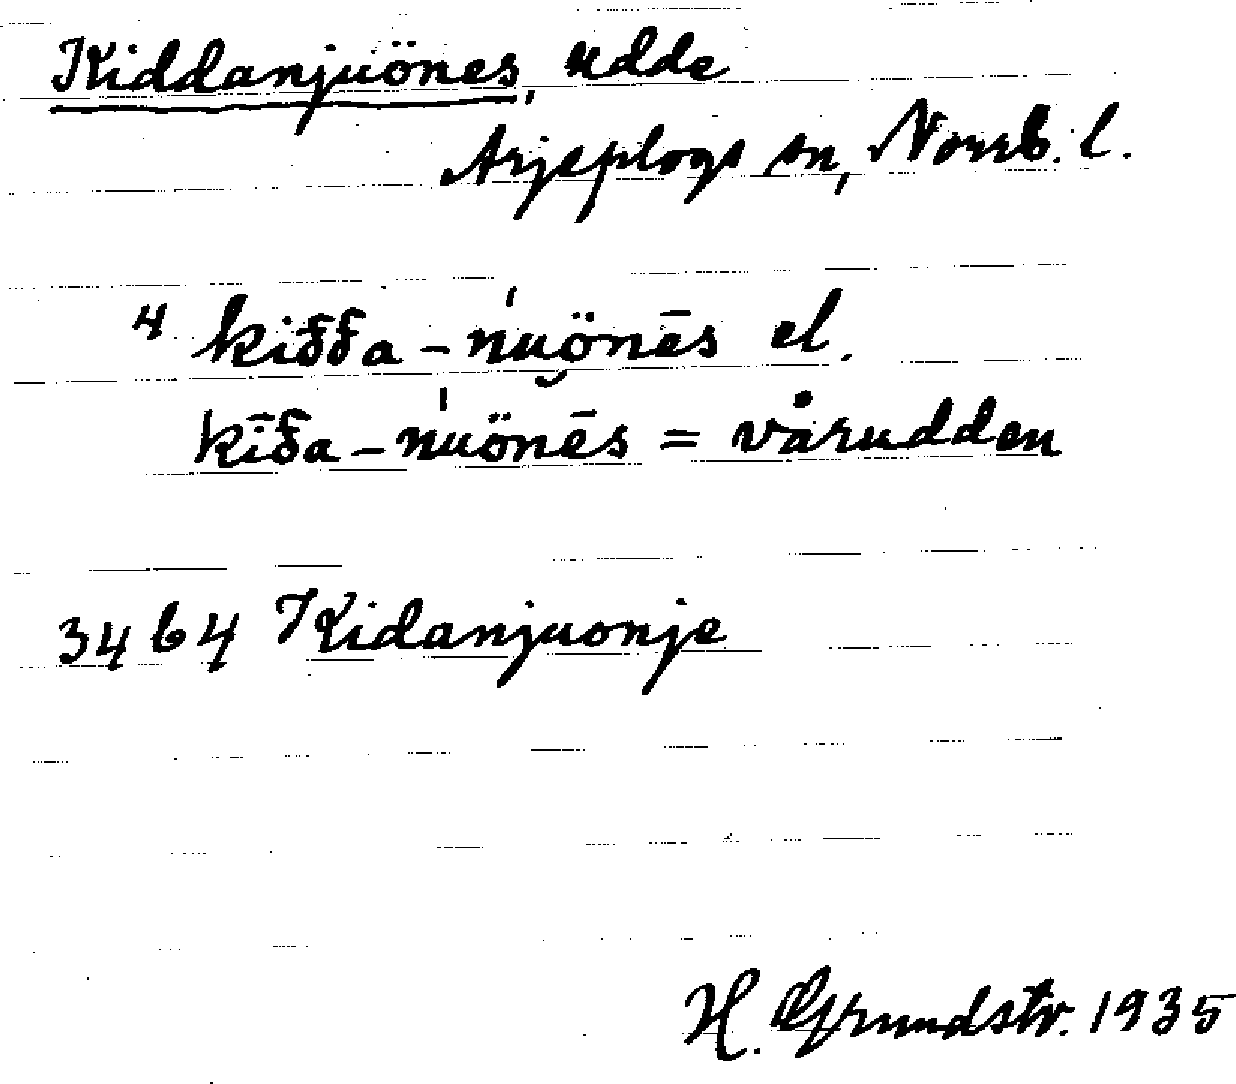 Kiddanjuönes, udde
Arjeplogs sn, Norrb. l.
4 kiđđa-ń̯uö̯nēs el.
kīđ̄a-ńuönēs = vårudden
3464 Kidanjuonje
H. Grundstr. 1935